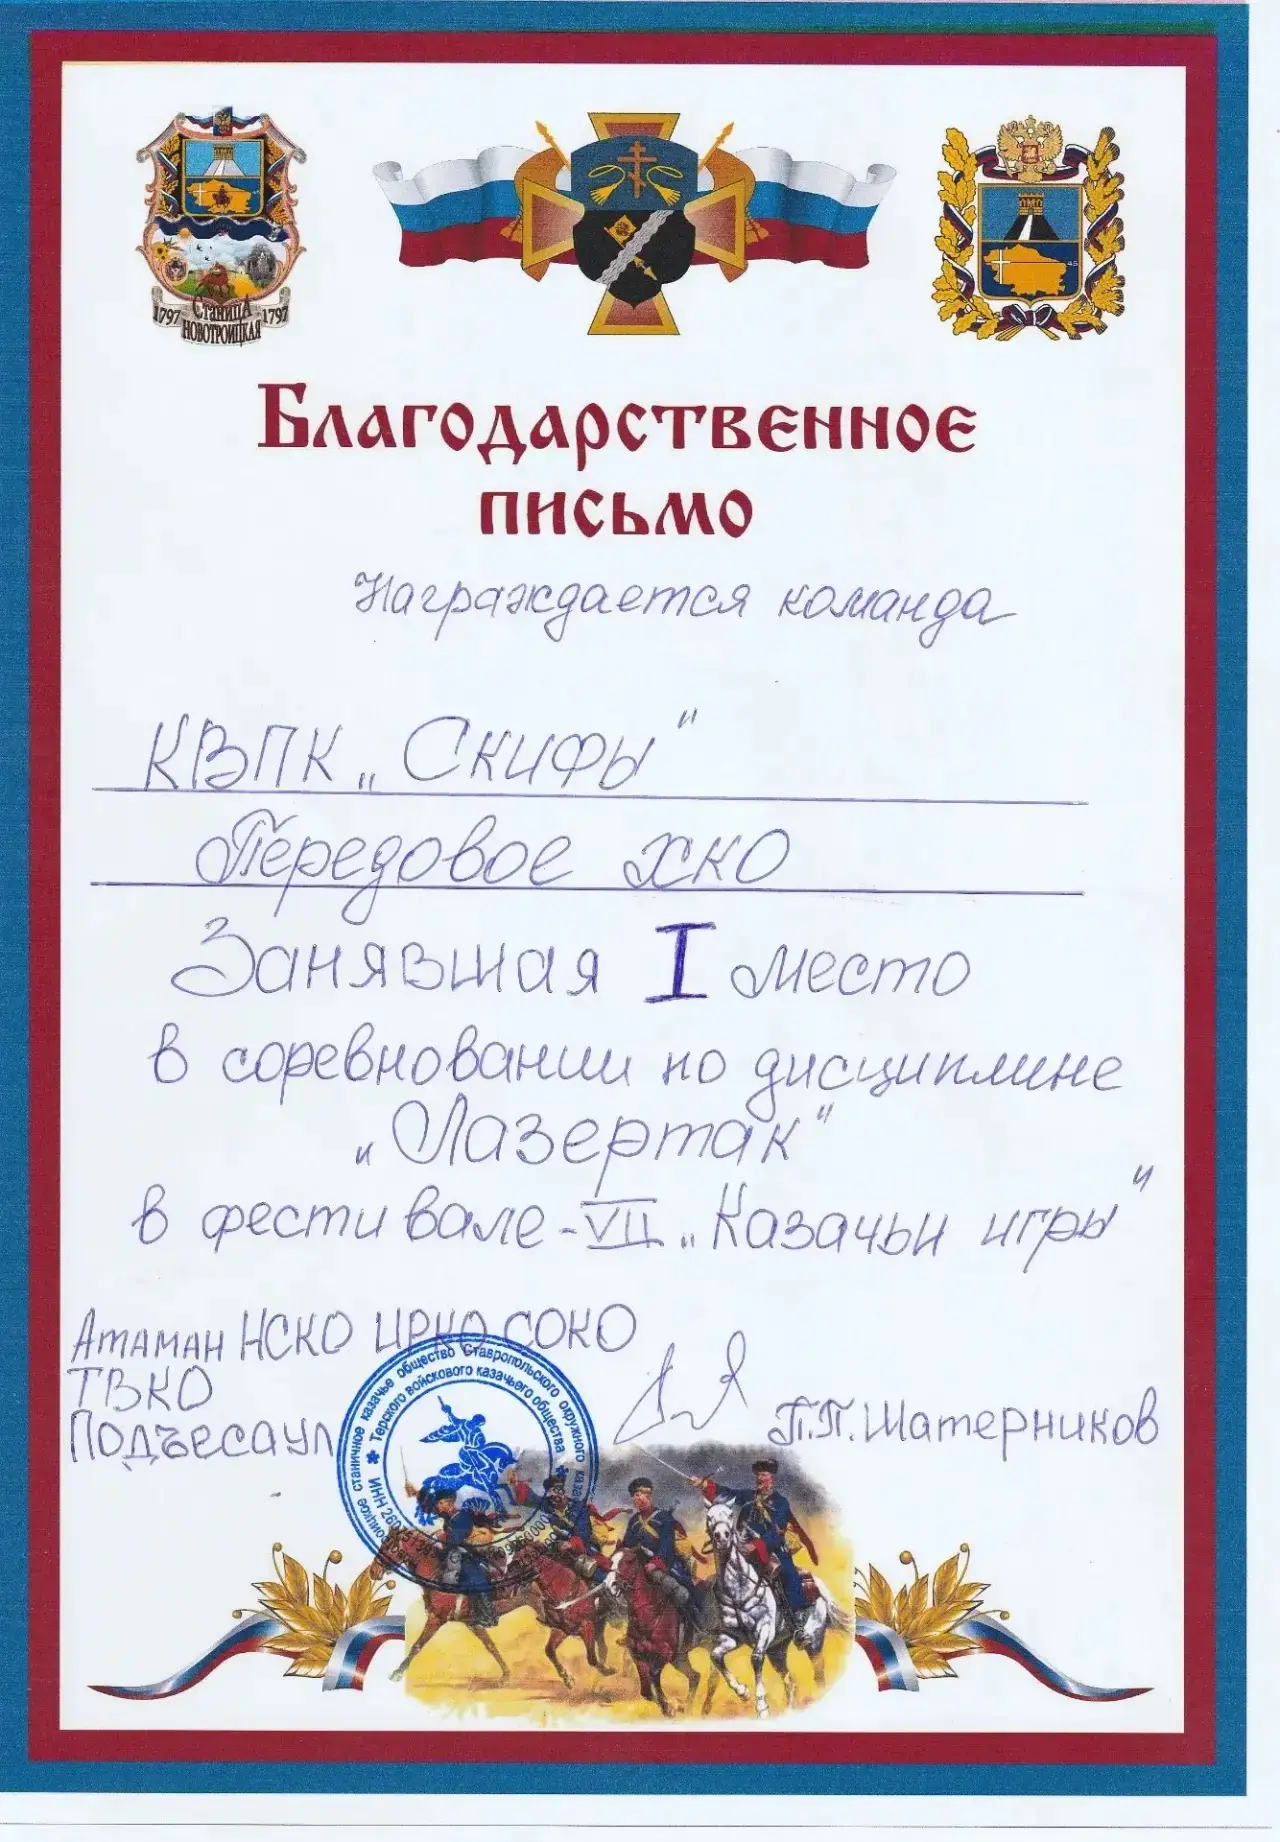 1797 Станица 1797
Новотроицкая
45
Благодарственное
письмо
Награждается команда
КВПК „Скифы"
Передовое ХКО
Занявшая I место
в соревновании по дисциплине
„Лазертак"
в фестивале-VII „Казачьи игры"
Атаман НСКО ИРКО СОКО
ТВКО
Подъесаул П.П. Шатерников
станичное казачье общество Ставропольского окружного
Терского войскового казачьего общества
ИНН